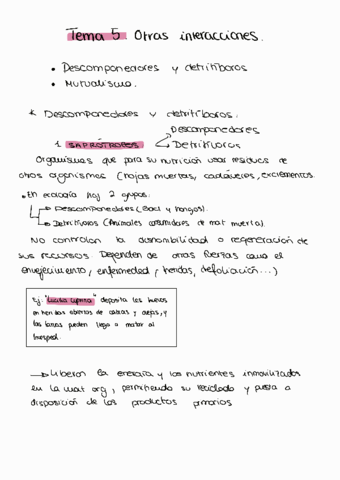 Tema 5 Otras interacciones.
• Descomponedores y detritíboros
• Mutualismo.
* Descomponedores y detritíboros.
Descomponedores
1 SAPRÓTROFOS
Detritívoros
Organismos que para su nutrición usan residuos de
otros organismos (hojas muertas, cadáveres, excrementos.
• En ecología hay 2 grupos.
→ Descomponedores (Bact y hongos).
→ Detritívoros (Animales consumidores de mat muerta).
No controlan la disponibilidad o regeneración de
sus recursos. Dependen de otras fuerzas como el
envejecimiento, enfermedad, heridas, defoliación...)
Ej. "Lucilia cuprina" deposita los huevos
en heridas abiertas de cabras y ovejas, y
las larvas pueden llegar a matar al
huesped.
→ Liberan la energía y los nutrientes inmovilizados
en la mat org, permitiendo su reciclado y puesta a
disposición de los productos primarios